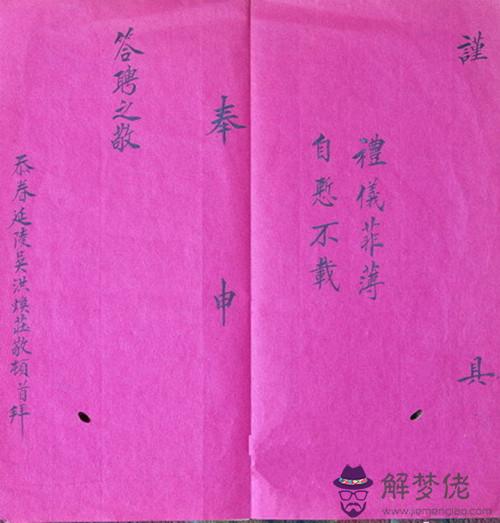 謹具
禮儀菲薄
自慙不載
奉申
答聘之敬
忝眷延陵吳洪煥莊敬頓首拜
解梦佬
www.jiemenglao.com